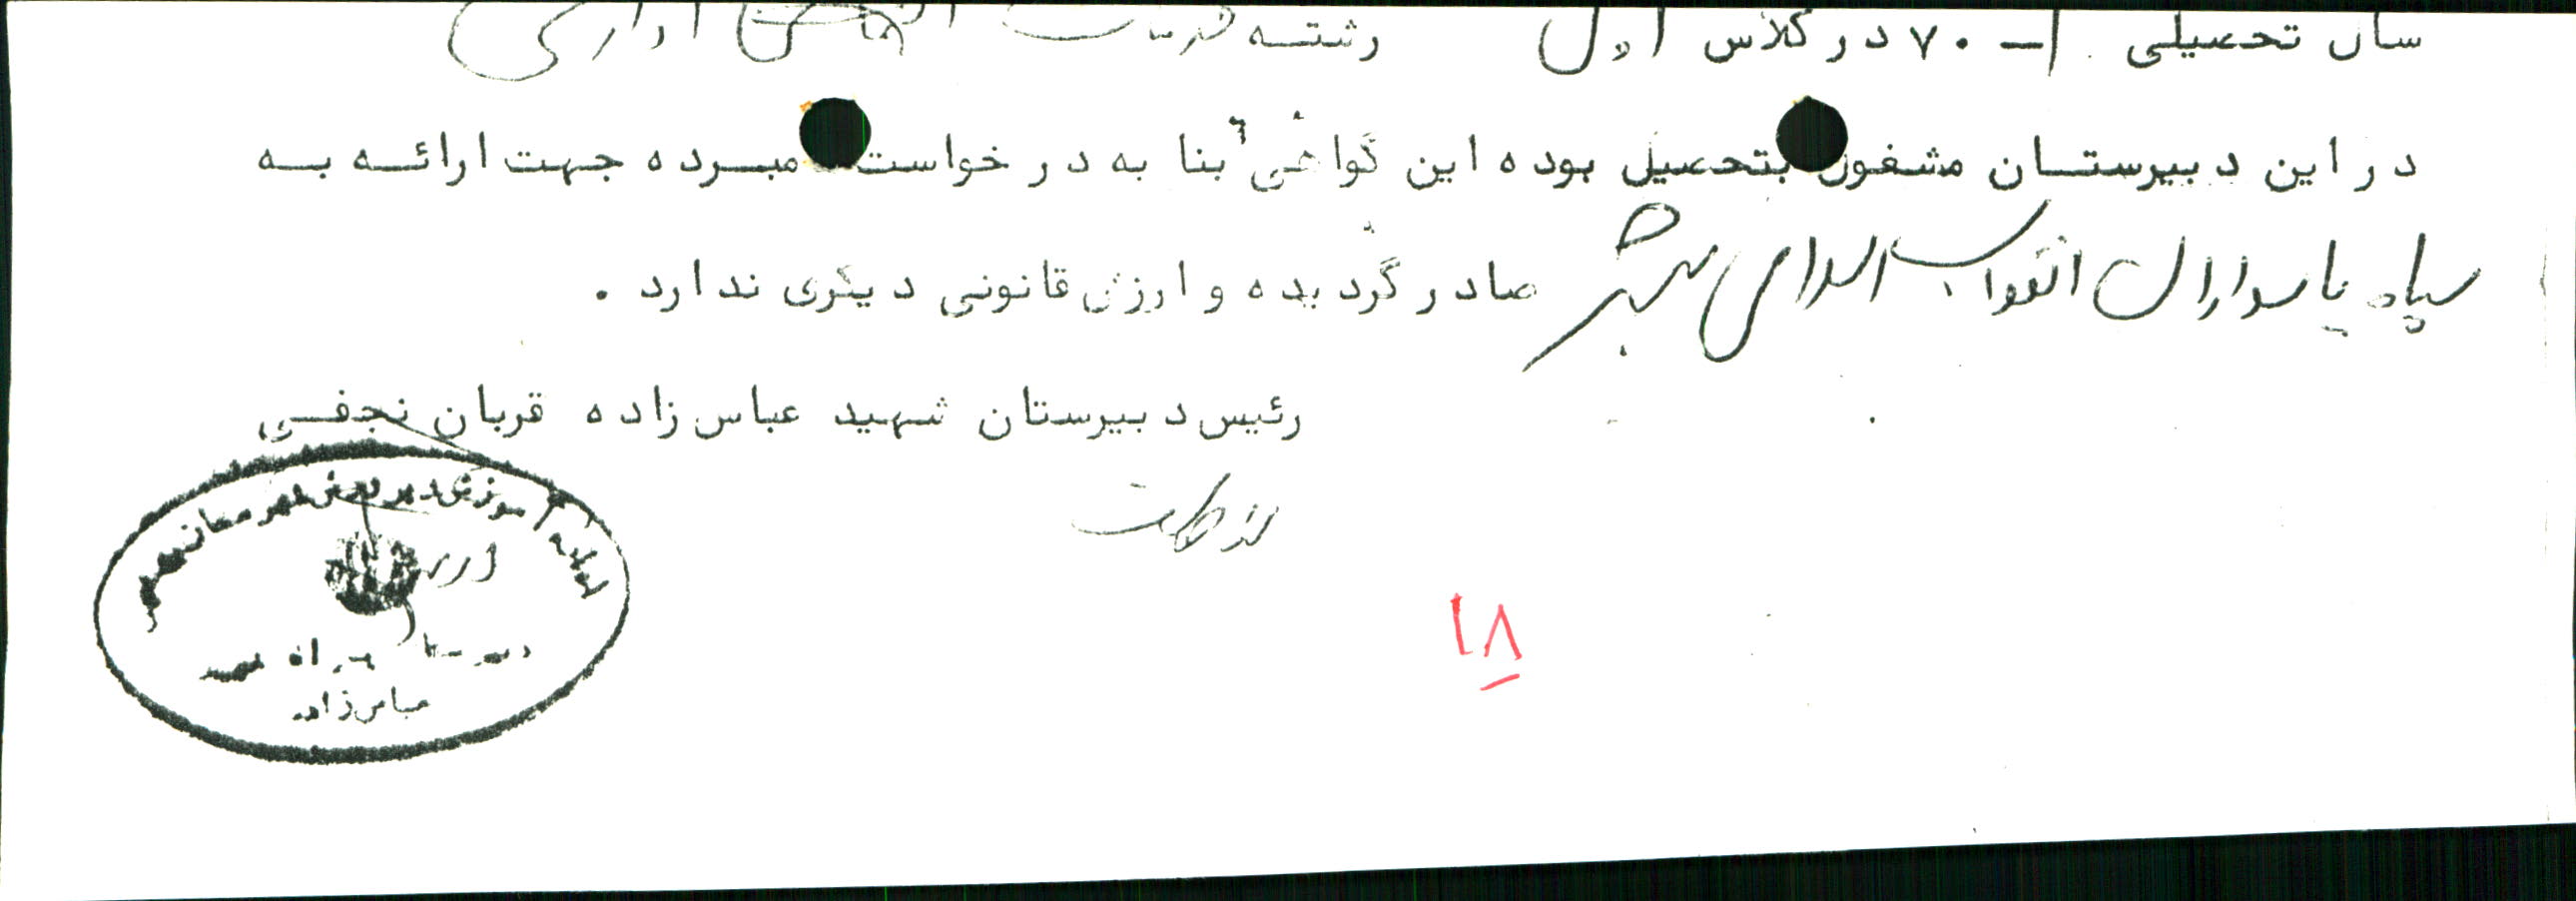 سال تحصیلی ۷۰ در کلاس اول رشته خدمات اداری
در این دبیرستان مشغول بتحصیل بوده این گواهی بنا به درخواست نامبرده جهت ارائه به
سپاه پاسداران انقلاب اسلامی صادر گردیده و ارزش قانونی دیگری ندارد .
رئیس دبیرستان شهید عباس زاده قربان نجفی
اداره آموزش و پرورش شهرستان
دبیرستان پسرانه شهید
عباس زاده
۱۸